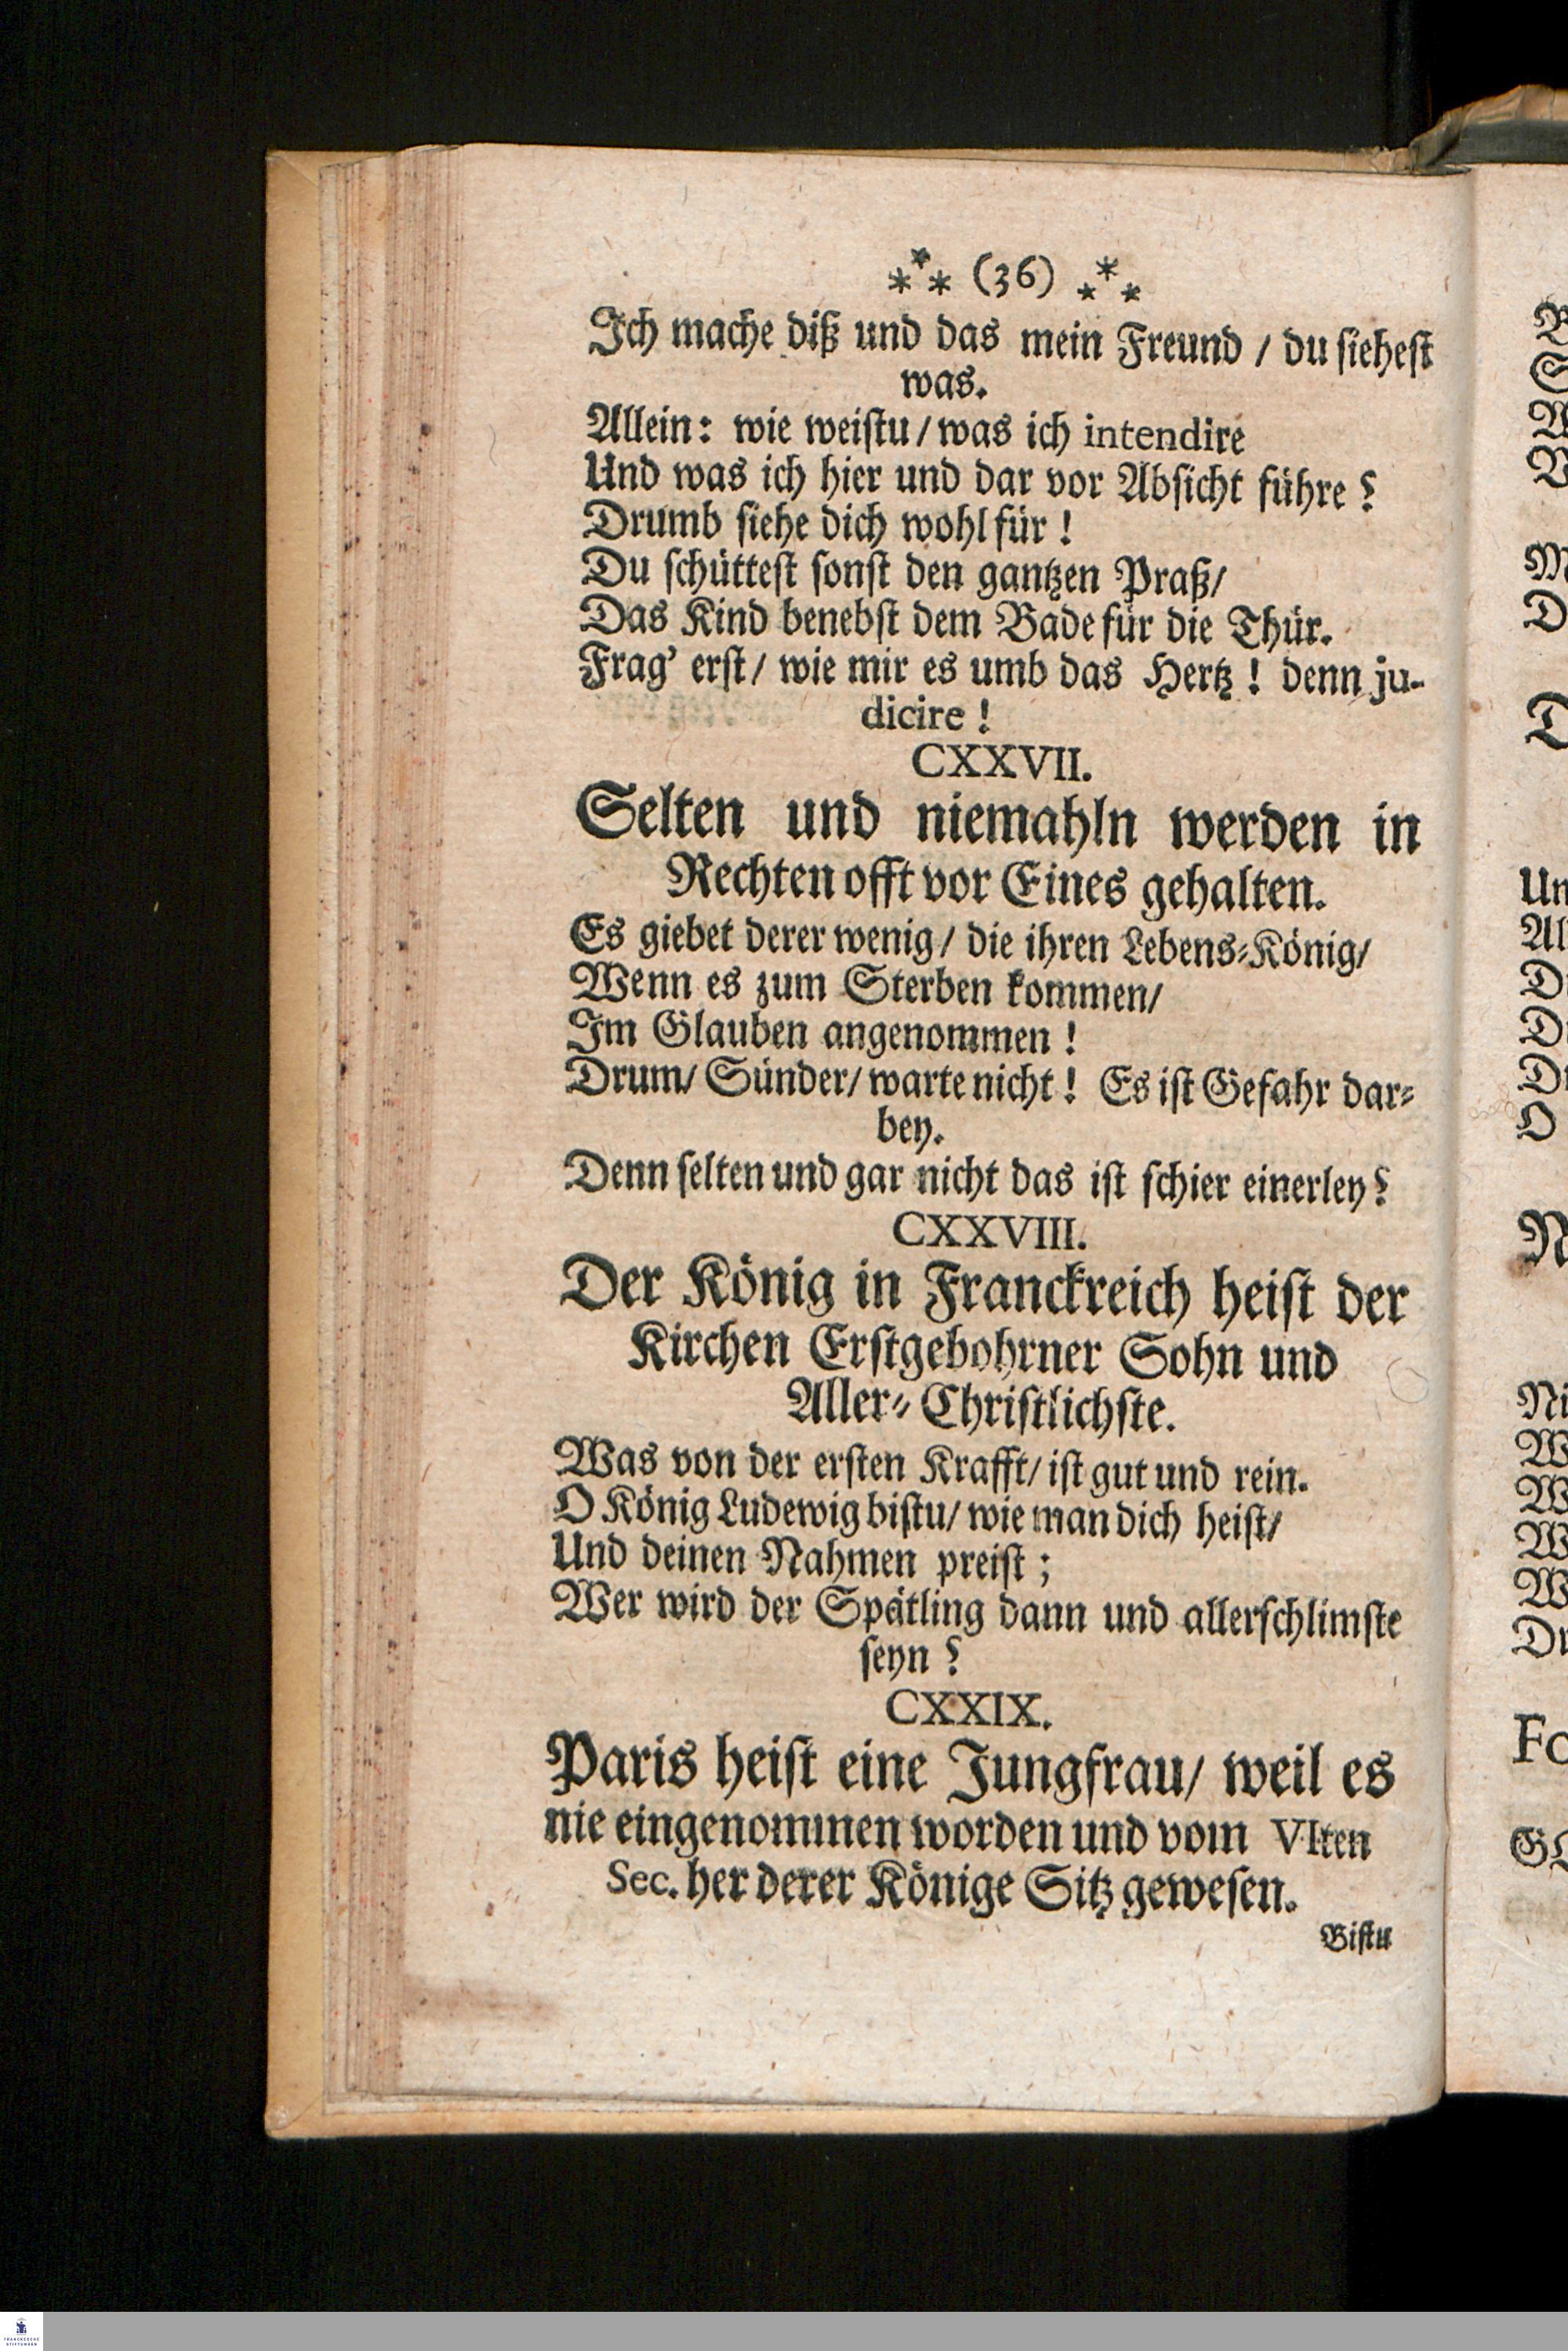 *** (36) ***
Ich mache diß und das mein Freund / du siehest
was.
Allein: wie weistu / was ich intendire
Und was ich hier und dar vor Absicht führe?
Drumb siehe dich wohl für!
Du schüttest sonst den gantzen Praß/
Das Kind benebst dem Bade für die Thür.
Frag' erst / wie mir es umb das Hertz! denn ju-
dicire!
CXXVII.
Selten und niemahln werden in
Rechten offt vor Eines gehalten.
Es giebet derer wenig / die ihren Lebens-König/
Wenn es zum Sterben kommen/
Im Glauben angenommen!
Drum/ Sünder/ warte nicht! Es ist Gefahr dar-
bey.
Denn selten und gar nicht das ist schier einerley?
CXXVIII.
Der König in Franckreich heist der
Kirchen Erstgebohrner Sohn und
Aller-Christlichste.
Was von der ersten Krafft/ ist gut und rein.
O König Ludewig bistu/ wie man dich heist/
Und deinen Nahmen preist;
Wer wird der Spätling dann und allerschlimste
seyn?
CXXIX.
Paris heist eine Jungfrau/ weil es
nie eingenommen worden und vom VIten
Sec. her derer Könige Sitz gewesen.
Bistu
FRANCKESCHE
STIFTUNGEN